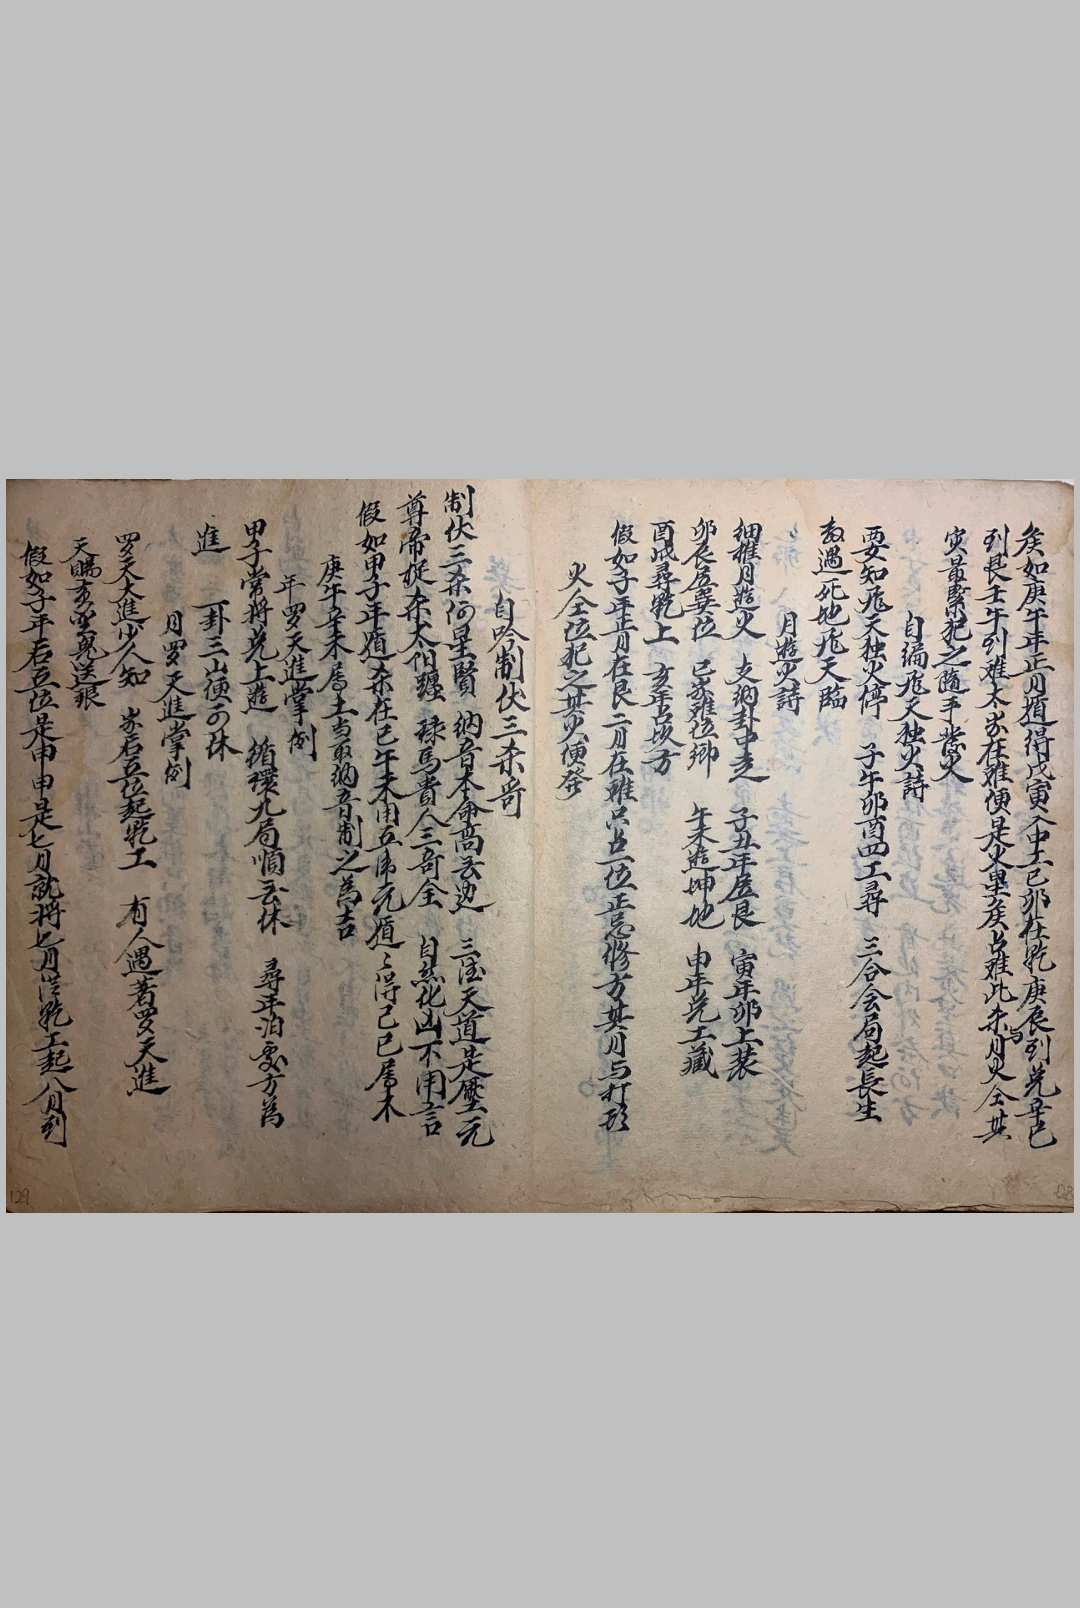 矣如庚午年正月遁得戊寅入中土己卯在乾庚辰到兌辛巳
到艮壬午到難太岁在難便是火星矣占難此方月火全其
寅最緊犯之隨手發火
自編飛天独火詩
要知飛天独火停 子午卯酉四工尋 三合会局起長生
遇死地飛天臨
月遊火詩
細推月遊火 支納卦中走 子丑年居艮 寅年卯上裝
卯辰居巽位 巳岁難位鄉 午未遊坤地 申年兌土藏
酉戌尋乾上 亥年占坎方
假如子年正月在艮二月在難只占一位正忌修方其月与打形
火全位犯之其火便發
自吟制伏三杀哥
制伏三杀何星賢 納音本命高去边 三德天道是壓元
尊帝從杀太阳纏 祿馬貴人三奇全 自然化凶不用言
假如甲子年遁杀在巳午未用五虎元遁々得己巳屬木
庚午辛未屬土当取納音制之為吉
年罗天進掌例
甲子常将兌上遊 循環九局順去休 尋年泊处方為
進 一卦三山便可休
月罗天進掌例
罗天大進少人知 岁右五位起乾工 有人遇著罗天進
天賜黃金鬼送銀
假如子年右五位是申申是七月就将七月從乾工起八月到